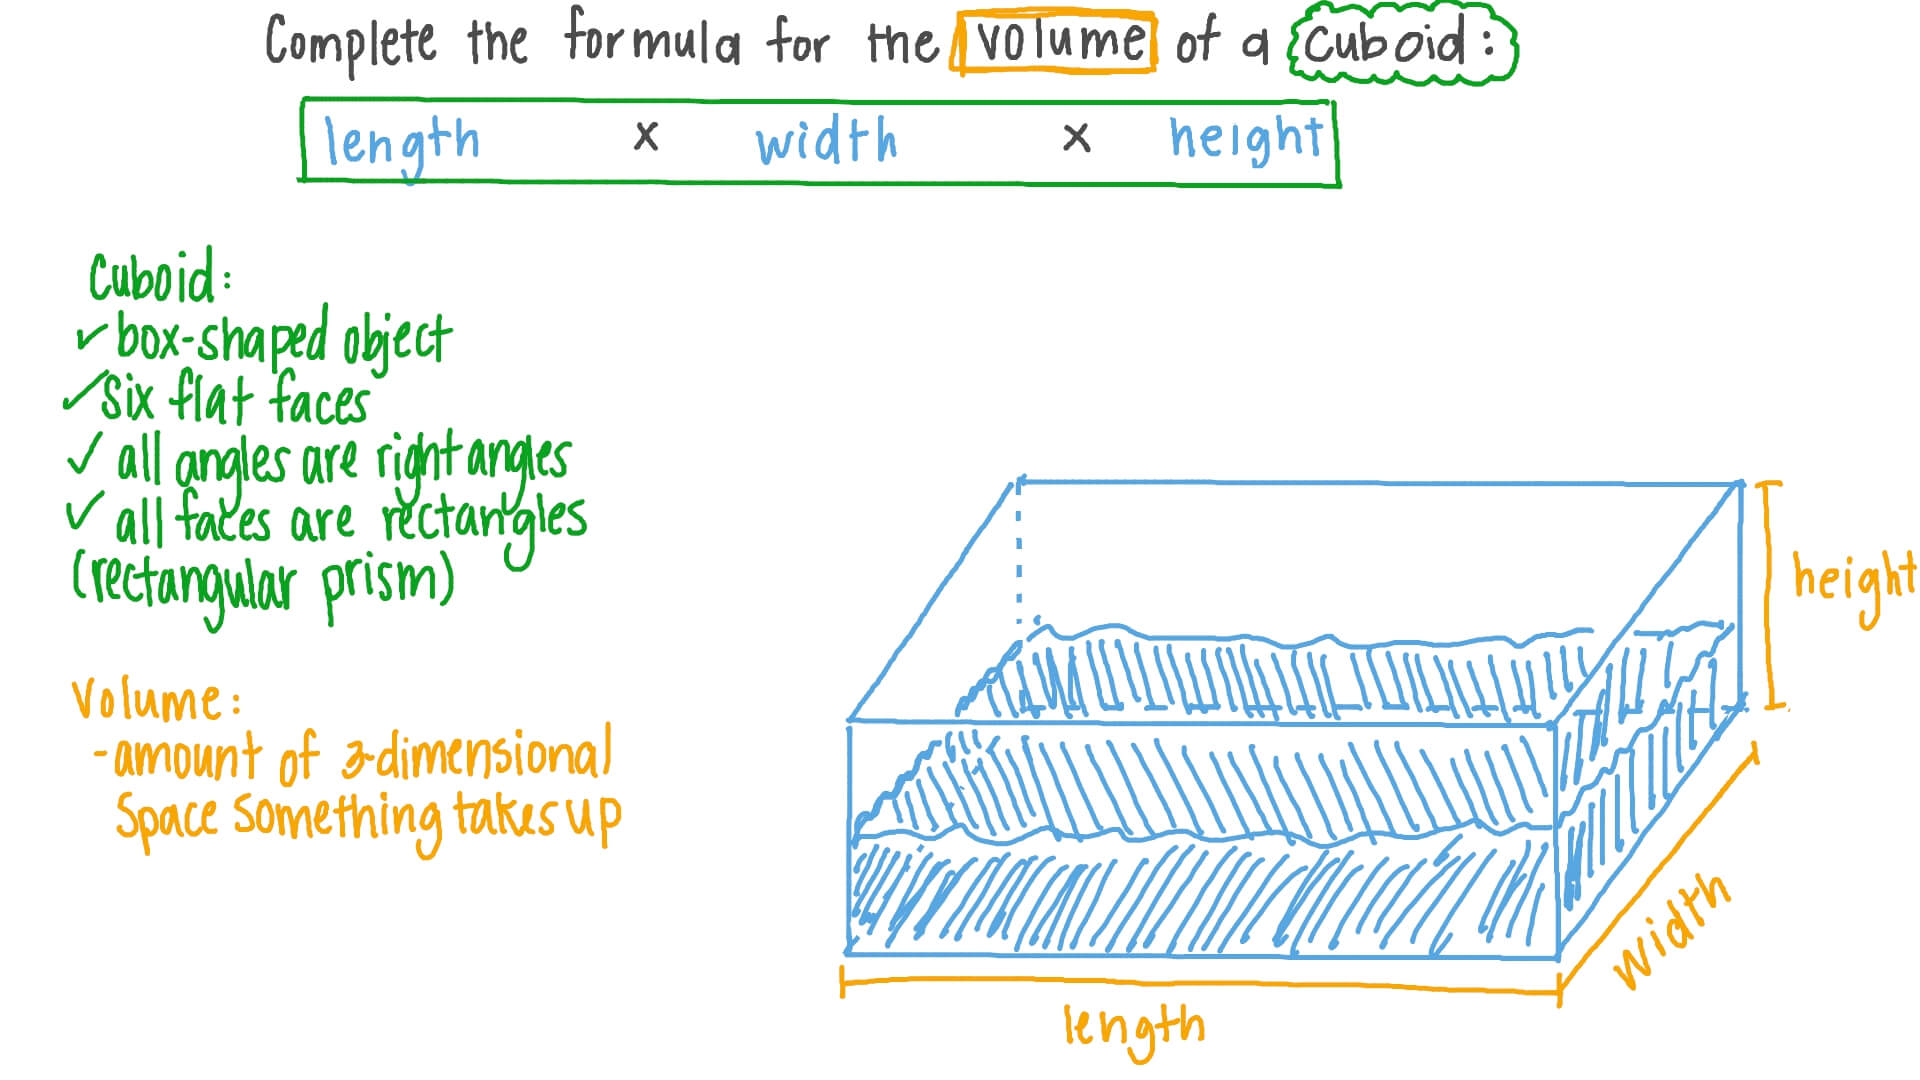 Complete the formula for the volume of a cuboid:
length x width x height
Cuboid:
✓ box-shaped object
✓ six flat faces
✓ all angles are right angles
✓ all faces are rectangles
(rectangular prism)
Volume:
- amount of 3-dimensional
space something takes up
height
width
length